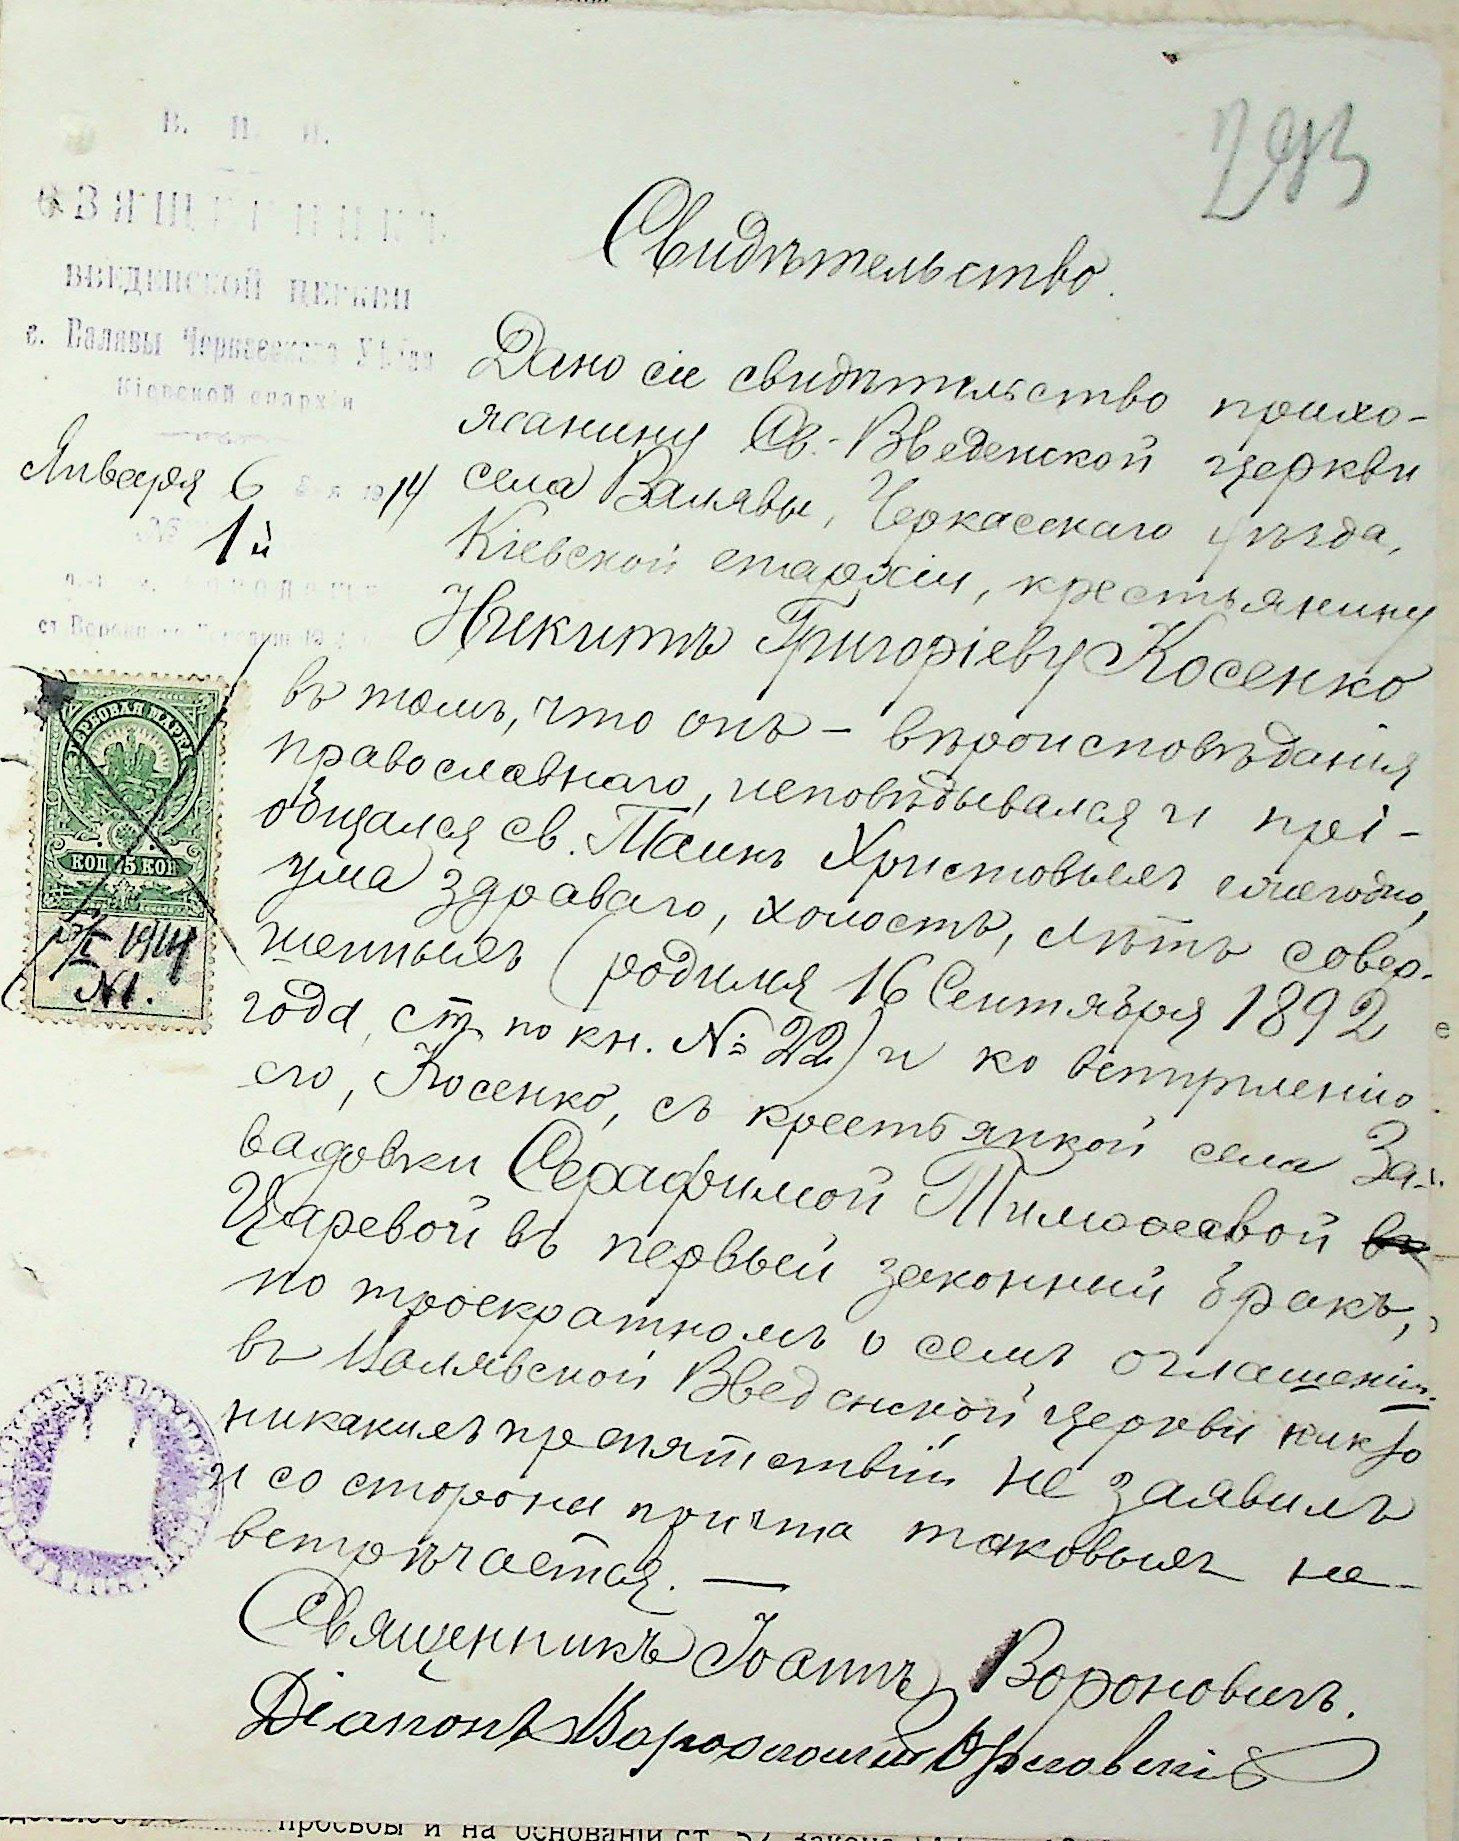 293
В. П. И.
СВЯЩЕННИКЪ
ВВЕДЕНСКОЙ ЦЕРКВИ
с. Валявы Черкасскаго Уѣзда
Кіевской епархіи
Января 6 дня 1914
№ 1й
Свидѣтельство.
Дано сіе свидѣтельство прихо-
жанину Св.-Введенской церкви
села Валявы, Черкасскаго уѣзда,
Кіевской епархіи, крестьянину
Никитѣ Григоріеву Косенко
въ томъ, что онъ – вѣроисповѣданія
православнаго, исповѣдывался и прі-
общался св. Таинъ Христовыхъ ежегодно,
ума здраваго, холостъ, лѣтъ совер-
шенныхъ (родился 16 Сентября 1892
года, ст. по кн. № 22) и ко вступленію
его, Косенко, съ крестьянкой села За-
вадовки Серафимой Тимоѳеевой
Царевой въ первый законный бракъ,
по троекратномъ о семъ оглашеніи
въ Валявской Введенской церкви никто
никакихъ препятствій не заявилъ
и со стороны причта таковыхъ не-
встрѣчается. —
Священникъ Іоаннъ Вороновичъ.
Діаконъ
ГЕРБОВАЯ МАРКА
КОП 75 КОП
6/I 1914
№1.
просьбы и на основаніи ст. 37 закона